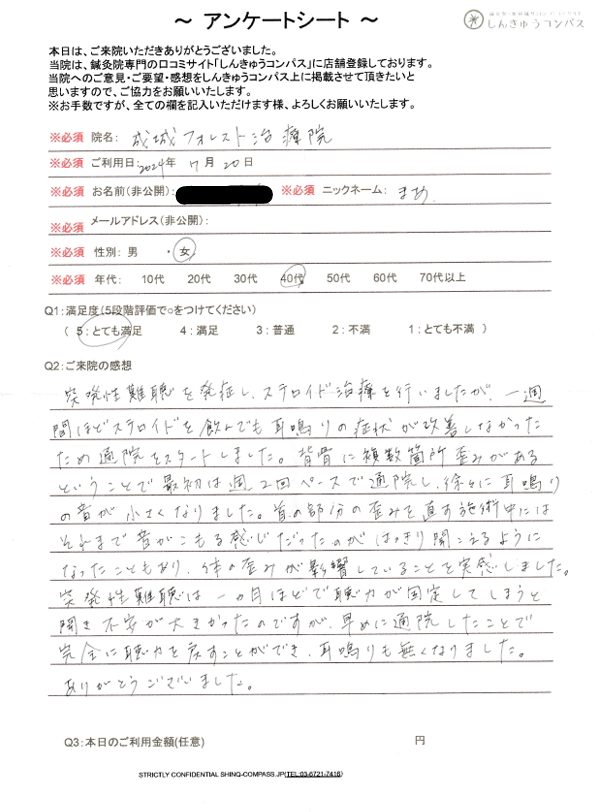 ～ アンケートシート ～
しんきゅうコンパス
本日は、ご来院いただきありがとうございました。
当院は、鍼灸院専門の口コミサイト「しんきゅうコンパス」に店舗登録しております。
当院へのご意見・ご要望・感想をしんきゅうコンパス上に掲載させて頂きたいと
思いますので、ご協力をお願いいたします。
※お手数ですが、全ての欄を記入いただけます様、よろしくお願いいたします。
※必須 院名: 成城フォレスト治療院
※必須 ご利用日: 2024年 7月 20日
※必須 お名前(非公開): ※必須 ニックネーム: まあ
※必須 メールアドレス(非公開):
※必須 性別: 男 ・ 女
※必須 年代: 10代 20代 30代 40代 50代 60代 70代以上
Q1:満足度(5段階評価で○をつけてください)
( 5:とても満足 4:満足 3:普通 2:不満 1:とても不満 )
Q2:ご来院の感想
突発性難聴を発症し、ステロイド治療を行いましたが、一週
間ほどステロイドを飲んでも耳鳴りの症状が改善しなかった
ため通院をスタートしました。背骨に複数箇所歪みがある
ということで最初は週2回ペースで通院し、徐々に耳鳴り
の音が小さくなりました。首の部分の歪みを直す施術中には
それまで音がこもる感じだったのがはっきり聞こえるように
なったこともあり、体の歪みが影響していることを実感しました。
突発性難聴は一ヵ月ほどで聴力が固定してしまうと
聞き不安が大きかったのですが、早めに通院したことで
完全に聴力を戻すことができ、耳鳴りも無くなりました。
ありがとうございました。
Q3:本日のご利用金額(任意) 円
STRICTLY CONFIDENTIAL SHINQ-COMPASS.JP(TEL:03-6721-7416)